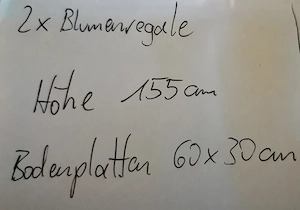 2x Blumenregale
Höhe 155cm
Bodenplatten 60x30cm